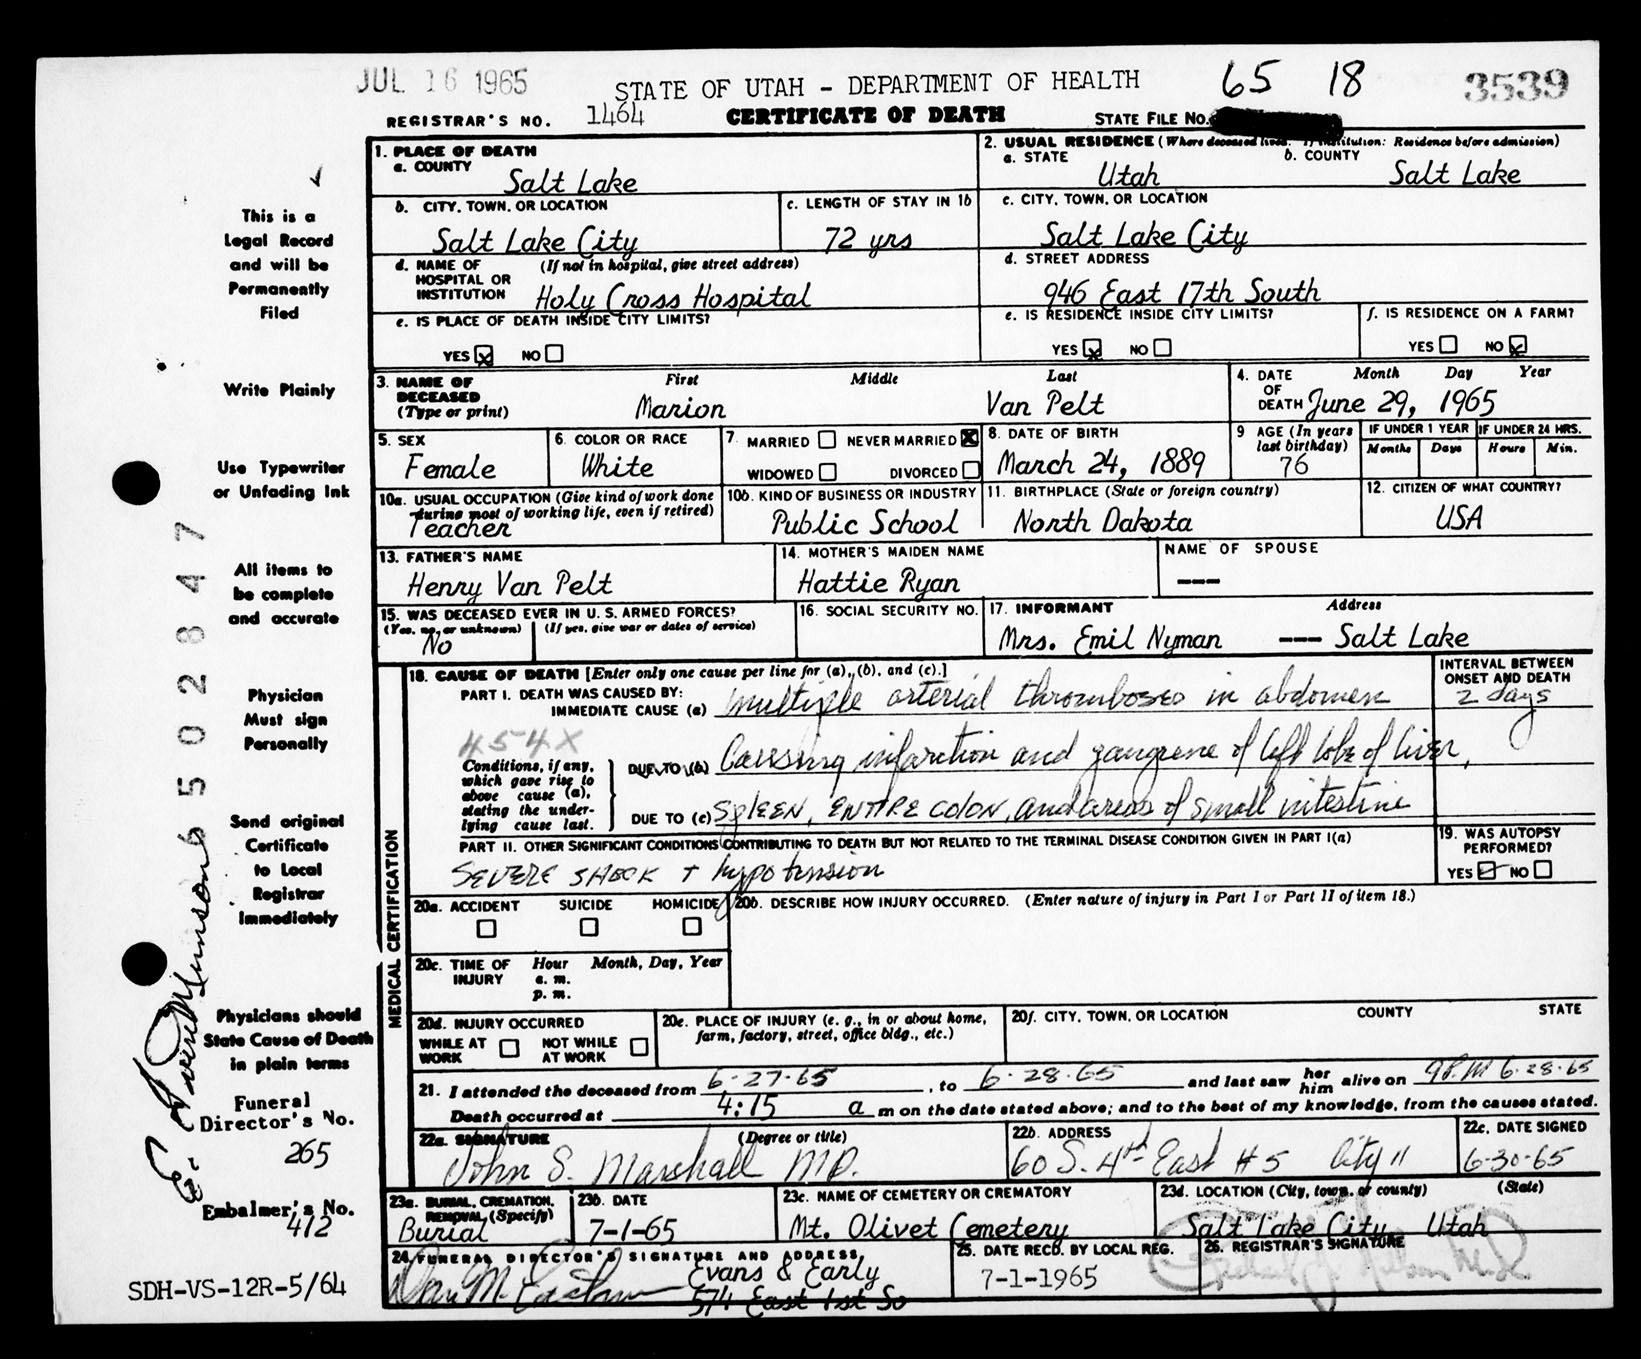 JUL 16 1965
STATE OF UTAH - DEPARTMENT OF HEALTH
65 18
3539
REGISTRAR'S NO. 1464
CERTIFICATE OF DEATH
STATE FILE NO.
This is a
Legal Record
and will be
Permanently
Filed
Write Plainly
Use Typewriter
or Unfading Ink
All items to
be complete
and accurate
Physician
Must sign
Personally
Send original
Certificate
to Local
Registrar
Immediately
Physicians should
State Cause of Death
in plain terms
Funeral
Director's No.
265
Embalmer's No.
412
SDH-VS-12R-5/64
6502847
1. PLACE OF DEATH
a. COUNTY
Salt Lake
2. USUAL RESIDENCE (Where deceased lived. If institution: Residence before admission)
a. STATE
Utah
b. COUNTY
Salt Lake
b. CITY, TOWN, OR LOCATION
Salt Lake City
c. LENGTH OF STAY IN 1b
72 yrs
c. CITY, TOWN, OR LOCATION
Salt Lake City
d. NAME OF HOSPITAL OR INSTITUTION (If not in hospital, give street address)
Holy Cross Hospital
d. STREET ADDRESS
946 East 17th South
e. IS PLACE OF DEATH INSIDE CITY LIMITS?
YES X NO
e. IS RESIDENCE INSIDE CITY LIMITS?
YES X NO
f. IS RESIDENCE ON A FARM?
YES NO X
3. NAME OF DECEASED (Type or print)
First Middle Last
Marion Van Pelt
4. DATE OF DEATH
Month Day Year
June 29, 1965
5. SEX
Female
6. COLOR OR RACE
White
7. MARRIED NEVER MARRIED X
WIDOWED DIVORCED
8. DATE OF BIRTH
March 24, 1889
9 AGE (In years last birthday)
76
IF UNDER 1 YEAR
Months Days
IF UNDER 24 HRS.
Hours Min.
10a. USUAL OCCUPATION (Give kind of work done during most of working life, even if retired)
Teacher
10b. KIND OF BUSINESS OR INDUSTRY
Public School
11. BIRTHPLACE (State or foreign country)
North Dakota
12. CITIZEN OF WHAT COUNTRY?
USA
13. FATHER'S NAME
Henry Van Pelt
14. MOTHER'S MAIDEN NAME
Hattie Ryan
NAME OF SPOUSE
---
15. WAS DECEASED EVER IN U. S. ARMED FORCES?
(Yes, no, or unknown) (If yes, give war or dates of service)
No
16. SOCIAL SECURITY NO.
17. INFORMANT Address
Mrs. Emil Nyman --- Salt Lake
MEDICAL CERTIFICATION
18. CAUSE OF DEATH [Enter only one cause per line for (a), (b), and (c).]
INTERVAL BETWEEN ONSET AND DEATH
PART I. DEATH WAS CAUSED BY:
IMMEDIATE CAUSE (a) multiple arterial thromboses in abdomen
2 days
454X
Conditions, if any, which gave rise to above cause (a), stating the underlying cause last.
DUE TO (b) Causing infarction and gangrene of left lobe of liver,
DUE TO (c) Spleen, ENTIRE COLON, and areas of small intestine
PART II. OTHER SIGNIFICANT CONDITIONS CONTRIBUTING TO DEATH BUT NOT RELATED TO THE TERMINAL DISEASE CONDITION GIVEN IN PART I(a)
SEVERE SHOCK + hypotension
19. WAS AUTOPSY PERFORMED?
YES NO
20a. ACCIDENT SUICIDE HOMICIDE
20b. DESCRIBE HOW INJURY OCCURRED. (Enter nature of injury in Part I or Part II of item 18.)
20c. TIME OF INJURY
Hour Month, Day, Year
a. m.
p. m.
20d. INJURY OCCURRED
WHILE AT WORK NOT WHILE AT WORK
20e. PLACE OF INJURY (e. g., in or about home, farm, factory, street, office bldg., etc.)
20f. CITY, TOWN, OR LOCATION COUNTY STATE
21. I attended the deceased from 6-27-65, to 6-28-65 and last saw her him alive on 9 P.M 6-28-65
Death occurred at 4:15 a m on the date stated above; and to the best of my knowledge, from the causes stated.
22a. SIGNATURE (Degree or title)
John S. Marshall MD.
22b. ADDRESS
60 S. 4th East #5 City 11
22c. DATE SIGNED
6-30-65
23a. BURIAL, CREMATION, REMOVAL (Specify)
Burial
23b. DATE
7-1-65
23c. NAME OF CEMETERY OR CREMATORY
Mt. Olivet Cemetery
23d. LOCATION (City, town, or county) (State)
Salt Lake City Utah
24. FUNERAL DIRECTOR'S SIGNATURE AND ADDRESS
Evans & Early
574 East 1st So
25. DATE RECD. BY LOCAL REG.
7-1-1965
26. REGISTRAR'S SIGNATURE